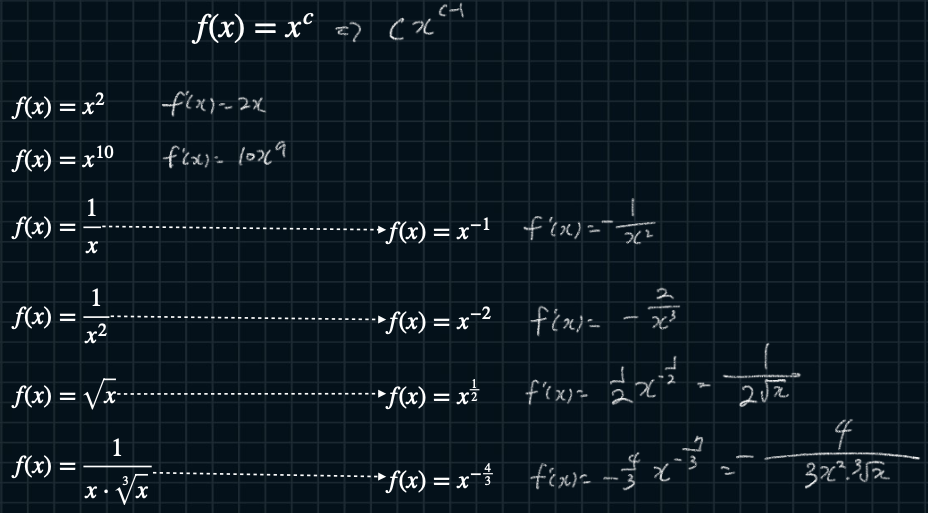 f(x) = x^c ⇒ cx^{c-1}
f(x) = x^2 f'(x) = 2x
f(x) = x^{10} f'(x) = 10x^9
f(x) = 1/x → f(x) = x^{-1} f'(x) = -1/x^2
f(x) = 1/x^2 → f(x) = x^{-2} f'(x) = -2/x^3
f(x) = √x → f(x) = x^{1/2} f'(x) = 1/2 x^{-1/2} = 1/(2√x)
f(x) = 1/(x · ∛x) → f(x) = x^{-4/3} f'(x) = -4/3 x^{-7/3} = -4/(3x^2 · ∛x)